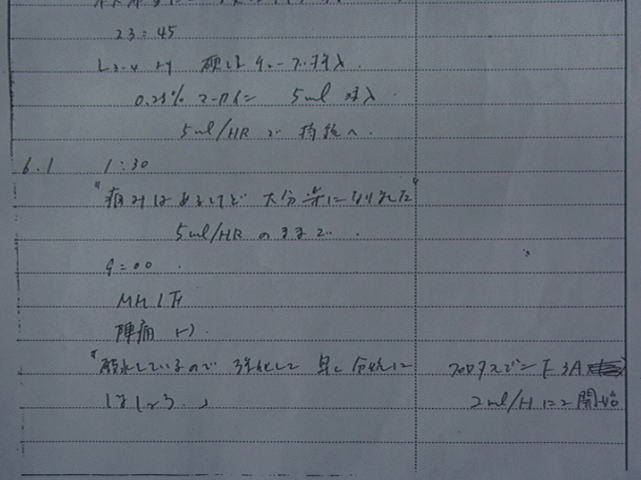 23:45
L3-4 より 硬膜チューブ挿入.
0.25% マーカイン 5ml 注入.
5ml/HR で 持続へ.
6.1 1:30
"痛みはあるけど 大分楽になりました"
5ml/HR のままで.
9:00
MH1F
陣痛 (-).
"破水しているので 強化して 早く分娩に
しましょう."
プロスタルモン F 3A
2ml/H にて開始